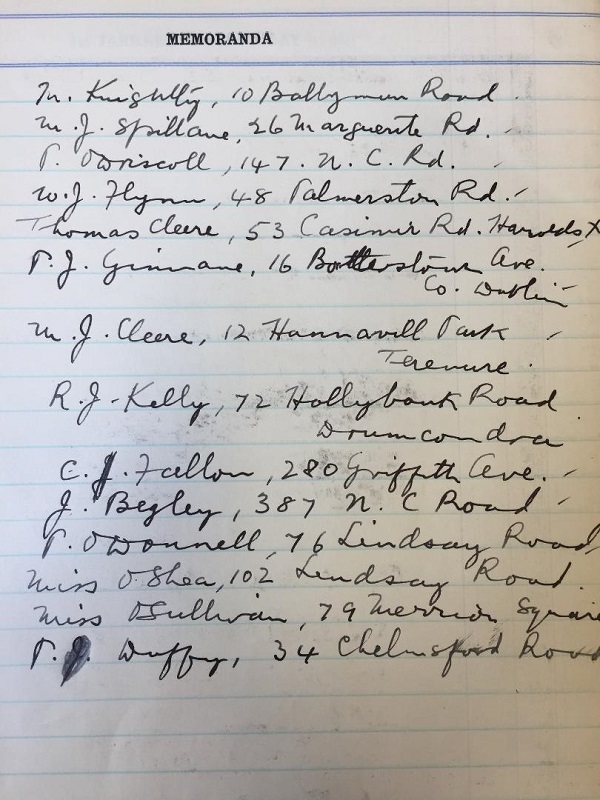 MEMORANDA
M. Knightly, 10 Ballymun Road.
M. J. Spillane, 26 Marguerite Rd.
P. O'Driscoll, 147. N. C. Rd.
W. J. Flynn, 48 Palmerston Rd.
Thomas Cleere, 53 Casimir Rd. Haroldsx
P. J. Ginnane, 16 Booterstown Ave.
Co. Dublin
M. J. Cleere, 12 Hannavill Park
Terenure.
R. J. Kelly, 72 Hollybank Road
Drumcondra
C. J. Fallon, 280 Griffith Ave.
J. Begley, 387 N. C Road
P. O'Donnell, 76 Lindsay Road,
Miss O'Shea, 102 Lindsay Road.
Miss O'Sullivan, 79 Merrion Square
P. J. Duffy, 34 Chelmsford Road